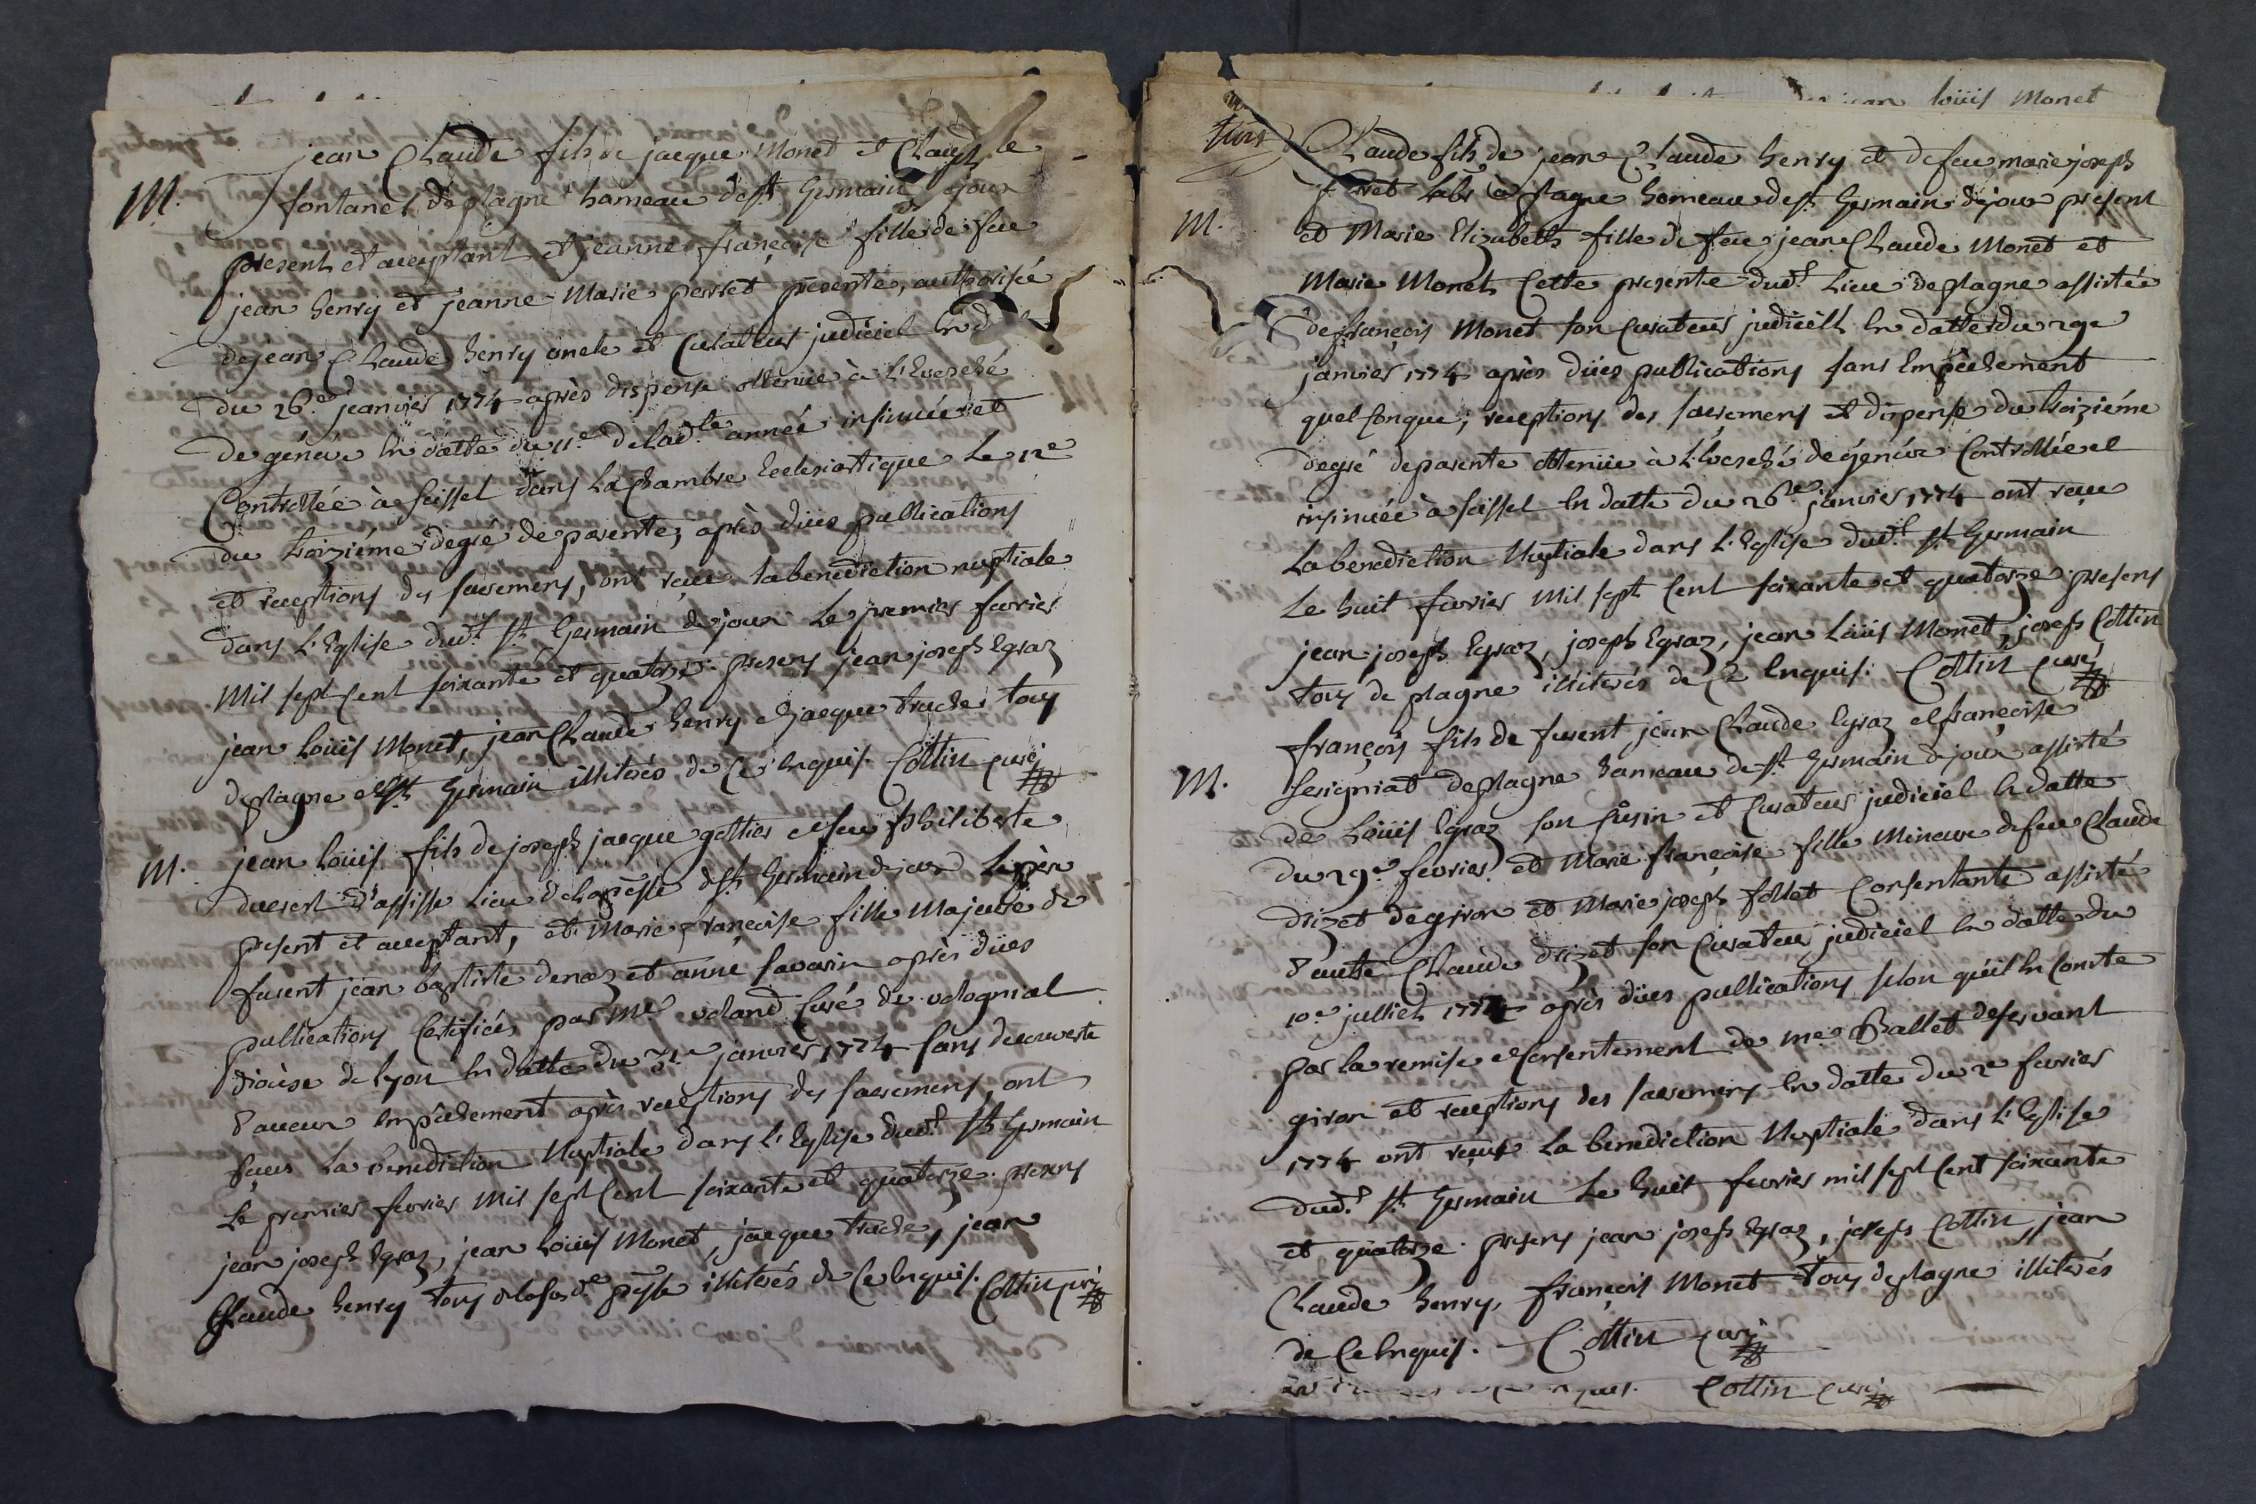 jean Claude fils de jacque Monet et Claud le
M.
fontanel deplagne hameau de st Germain dejoux
present et acceptant et jeanne françoise fille de feu
jean henry et jeanne Marie perret presente, authorisée
de jean Claude henry oncle et Curateur judiciel en d
du 26e jeanvier 1774 après dispense obtenüe à L'Evesché
de généve en datte du 11e de lad.te année insinuée et
Controllée à seissel dans la Chambre Ecclesiastique le 12e
du troiziéme degré de parenté, après düës publications
et receptions des sacremens, ont reçu la benediction nuptiale
dans L'Eglise dud.t st Germain dejoux Le premier fevrier
mil sept cent soixante et quatorze. presens jean joseph Egraz
jean Loüis Monet, jean Claude henry et jacque truche tous
deplagne et st Germain illiterés de Ce Enquis. Cottin curé
M.
jean Loüis fils de joseph jacque gottier et feu philiberte
ducret d'assisse Lieu de la pesse st Germain dejoux Le père
present et acceptant, et Marie françoise fille Majeure de
furent jean baptiste denaz et anne savarin après düës
publications Certifiées par Me voland Curé de vologniat
diocèse de lyon en datte du 31e janvier 1774 sans decouverte
d'aucun Empèchement après receptions des sacremens, ont
reçu La benediction Nuptiale dans L'Eglise dud.t st Germain
Le premier fevrier mil sept Cent soixante et quatorze. presens
jean joseph Egraz, jean Loüis Monet, jacque truche, jean
Claude henry tous de la sus.de p.sse illiterés de Ce Enquis. Cottin curé
jean loüis Monet
Claude fils de jean Claude henry et de feu marie joseph
labr à plagne hameau de st Germain dejoux present
M.
et Marie Elizabeth fille de feu jean Claude Monet et
Marie Monet Cette presente dud.t Lieu deplagne assistée
de françois Monet son Curateur judiciel en datte du 29e
janvier 1774 après düës publications sans Empèchement
quelConque, receptions des sacremens et dispense du troiziéme
degré de parenté obtenüe à L'Evesché de généve Controllée et
insinuée à seissel en datte du 26e janvier 1774 ont reçu
La benediction Nuptiale dans L'Eglise dud.t st Germain
Le huit fevrier mil sept Cent soixante et quatorze. presens
jean joseph Egraz, joseph Egraz, jean Loüis Monet, joseph Cottin
tous de plagne illiterés de Ce Enquis. Cottin curé
françois fils de furent jean Claude Egraz et françoise
M.
seigniat deplagne hameau de st Germain dejoux assisté
de Loüis Egraz son Cusin et Curateur judiciel en datte
du 29e fevrier et Marie françoise fille Mineure de feu Claude
drizet de giron et Marie joseph follet Consentante assisté
d'autre Claude drizet son Curateur judiciel en datte du
10e julliet 1774 après düës publications selon qu'il En Conste
par la remise et Consentement de Me Ballet deservant
giron et receptions des sacremens en datte du 2e fevrier
1774 ont reçus La benediction Nuptiale dans L'Eglise
dud.t st Germain Le huit fevrier mil sept Cent soixante
et quatorze. presens jean joseph Egraz, joseph Cottin, jean
Claude henry, françois Monet tous deplagne illiterés
de Ce Enquis. Cottin curé
Cottin curé